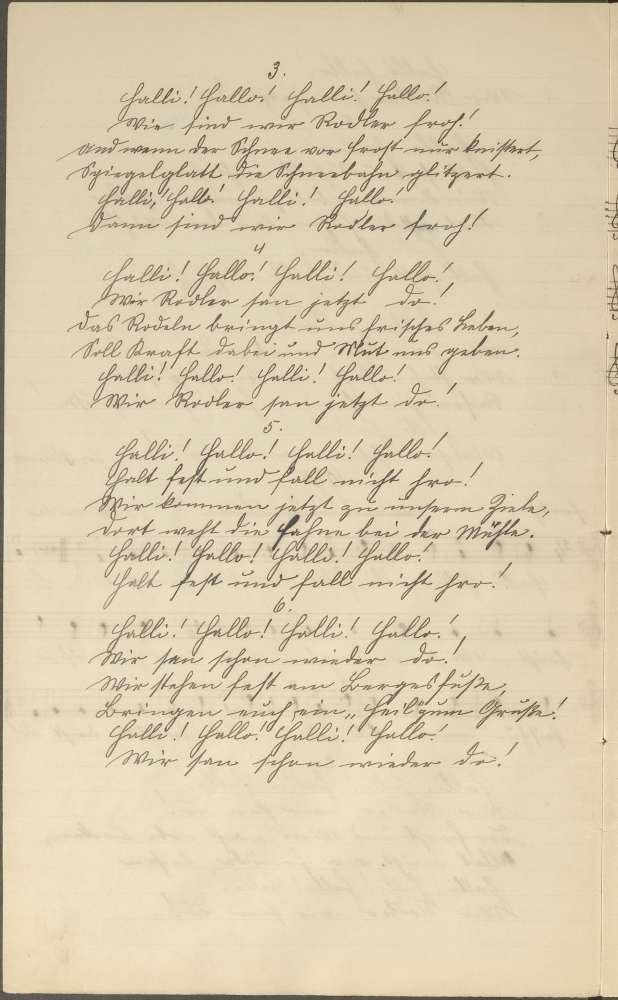 3.
Halli! Hallo! Halli! Hallo!
Wie sind wir Rodler froh!
Und wenn der Schnee vor Frost nur knistert,
Spiegelglatt die Schneebahn glitzert.
Halli, Hallo! Halli! Hallo!
Dann sind wir Rodler froh!
4
Halli! Hallo! Halli! Hallo!
Wir Rodler san jetzt do!
Das Rodeln bringt uns frisches Leben,
Soll Kraft dabei und Mut uns geben.
Halli! Hallo! Halli! Hallo!
Wir Rodler san jetzt do!
5.
Halli! Hallo! Halli! Hallo!
Halt fest und fall nicht hro!
Wir kommen jetzt zu unserm Ziele,
Dort weht die Fahne bei der Mühle.
Halli! Hallo! Halli! Hallo!
Halt fest und fall nicht hro!
6.
Halli! Hallo! Halli! Hallo!
Wir san schon wieder do!
Wir stehen fest am Bergesfuße,
Bringen euch ein „Heil“ zum Gruße!
Halli! Hallo! Halli! Hallo!
Wir san schon wieder do!